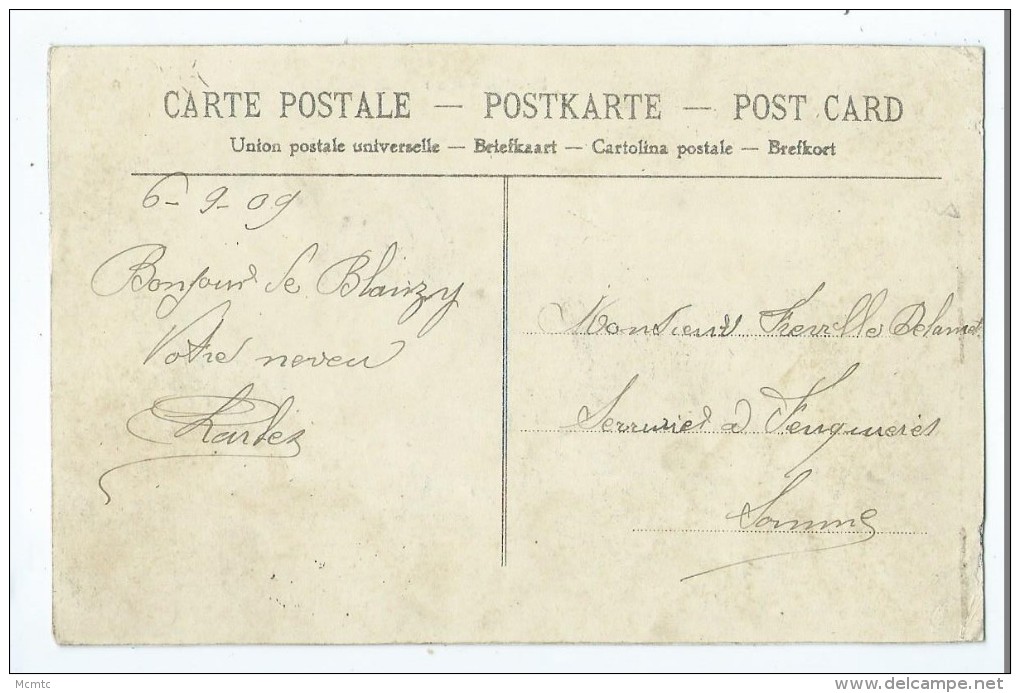 CARTE POSTALE — POSTKARTE — POST CARD
Union postale universelle — Briefkaart — Cartolina postale — Brefkort
6-9-09
Bonjour de Blangy
Votre neveu
Monsieur Freville Delamet
Serrurier à Feuquieres
Somme
Mcmtc
www.delcampe.net